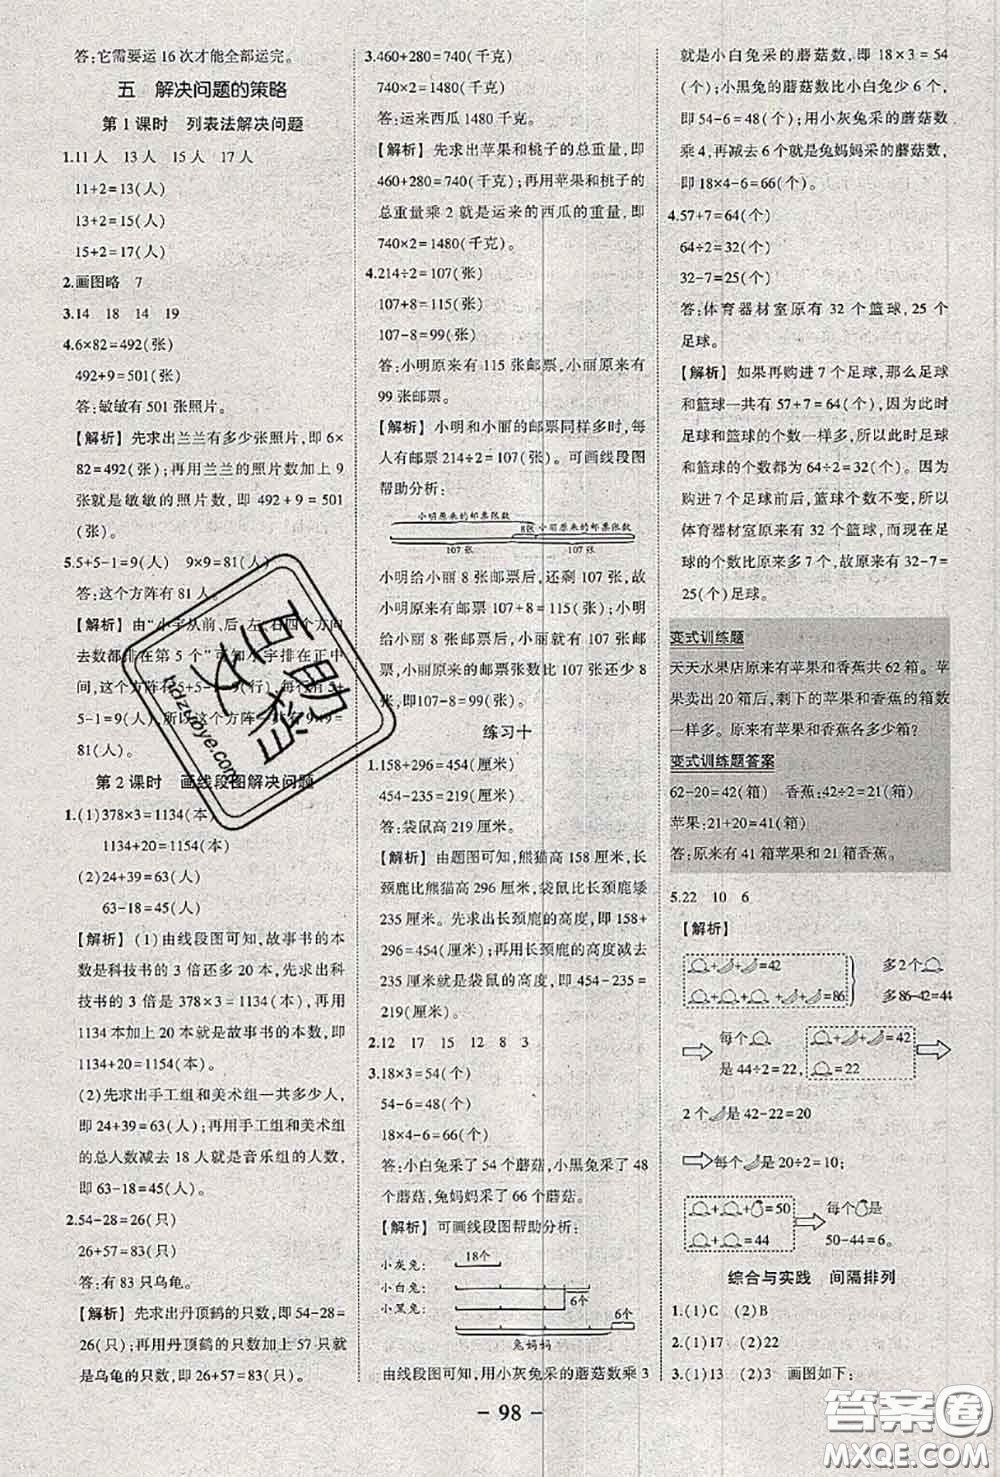 答:它需要运 16 次才能全部运完。
五 解决问题的策略
第 1 课时 列表法解决问题
1.11人 13人 15人 17人
11+2=13(人)
13+2=15(人)
15+2=17(人)
2.画图略 7
3.14 18 14 19
4.6×82=492(张)
492+9=501(张)
答:敏敏有 501 张照片。
【解析】先求出兰兰有多少张照片,即 6×
82=492(张);再用兰兰的照片数加上 9
张就是敏敏的照片数,即 492+9=501
(张)。
5.5+5-1=9(人) 9×9=81(人)
答:这个方阵有 81 人。
【解析】由“小宇从前、后、左、右四个方向
去数都排在第 5 个”可知小宇排在正中
间,这个方阵有 5+5-1=9(行),每行有 5+
5-1=9(人),所以这个方阵一共有 9×9=
81(人)。
第 2 课时 画线段图解决问题
1.(1)378×3=1134(本)
1134+20=1154(本)
(2)24+39=63(人)
63-18=45(人)
【解析】(1)由线段图可知,故事书的本
数是科技书的 3 倍还多 20 本,先求出科
技书的 3 倍是 378×3=1134(本),再用
1134 本加上 20 本就是故事书的本数,即
1134+20=1154(本)。
(2)先求出手工组和美术组一共多少人,
即 24+39=63(人);再用手工组和美术组
的总人数减去 18 人就是音乐组的人数,
即 63-18=45(人)。
2.54-28=26(只)
26+57=83(只)
答:有 83 只乌龟。
【解析】先求出丹顶鹤的只数,即 54-28=
26(只);再用丹顶鹤的只数加上 57 只就
是乌龟的只数,即 26+57=83(只)。
3.460+280=740(千克)
740×2=1480(千克)
答:运来西瓜 1480 千克。
【解析】先求出苹果和桃子的总重量,即
460+280=740(千克);再用苹果和桃子的
总重量乘 2 就是运来的西瓜的重量,即
740×2=1480(千克)。
4.214÷2=107(张)
107+8=115(张)
107-8=99(张)
答:小明原来有 115 张邮票,小丽原来有
99 张邮票。
【解析】小明和小丽的邮票同样多时,每
人有邮票 214÷2=107(张)。可画线段图
帮助分析:
小明原来的邮票张数
8张 小丽原来的邮票张数
107 张 107 张
小明给小丽 8 张邮票后,还剩 107 张,故
小明原来有 107+8=115(张)邮票;小明给
小丽 8 张邮票后,小丽就有 107 张邮票,
故小丽原来的邮票数比 107 张少 8 张,即
107-8=99(张)。
练习十
1.158+296=454(厘米)
454-235=219(厘米)
答:袋鼠高 219 厘米。
【解析】由题图可知,熊猫高 158 厘米,长
颈鹿比熊猫高 296 厘米,袋鼠比长颈鹿矮
235 厘米。先求出长颈鹿的高度,即 158+
296=454(厘米);再用长颈鹿的高度减去
235 厘米就是袋鼠的高度,即 454-235=
219(厘米)。
2.12 17 15 12 8 3
3.18×3=54(个)
54-6=48(个)
18×4-6=66(个)
答:小白兔采了 54 个蘑菇,小黑兔采了 48
个蘑菇,兔妈妈采了 66 个蘑菇。
【解析】可画线段图帮助分析:
18个
小灰兔:
小白兔:
6个
小黑兔:
6个
兔妈妈
由线段图可知,用小灰兔采的蘑菇数乘 3
就是小白兔采的蘑菇数,即 18×3=54
(个);小黑兔的蘑菇数比小白兔少 6 个,
即 54-6=48(个);用小灰兔采的蘑菇数
乘 4,再减去 6 个就是兔妈妈采的蘑菇数,
即 18×4-6=66(个)。
4.57+7=64(个)
64÷2=32(个)
32-7=25(个)
答:体育器材室原有 32 个篮球,25 个
足球。
【解析】如果再购进 7 个足球,那么足球
和篮球一共有 57+7=64(个),因为此时
足球和篮球的个数一样多,所以此时足球
和篮球的个数都为 64÷2=32(个)。因为
购进 7 个足球前后,篮球个数不变,所以
体育器材室原有 32 个篮球;而现在足
球的个数比原来多 7 个,故原有 32-7=
25(个)足球。
变式训练题
天天水果店原有苹果和香蕉共 62 箱。苹
果卖出 20 箱后,剩下的苹果和香蕉的箱数
一样多。原来有苹果和香蕉各多少箱?
变式训练题答案
62-20=42(箱) 香蕉:42÷2=21(箱)
苹果:21+20=41(箱)
答:原来有 41 箱苹果和 21 箱香蕉。
5.22 10 6
【解析】
+ + =42
+ + + + =86
多 2 个
多 86-42=44
每个
是 44÷2=22,
+ + =42
=22
2 个 是 42-22=20
每个 是 20÷2=10;
+ + =50
+ =44
每个 是
50-44=6。
综合与实践 间隔排列
1.(1)C (2)B
2.(1)17 (2)22
3.(1)13 (2)3 画图如下:
- 98 -
互助文档
hdzuoye.com
答案圈
MXQE.COM